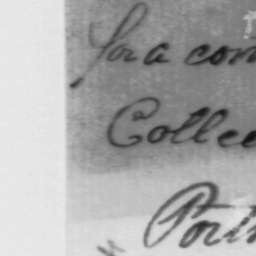 for a com
Colle
Port